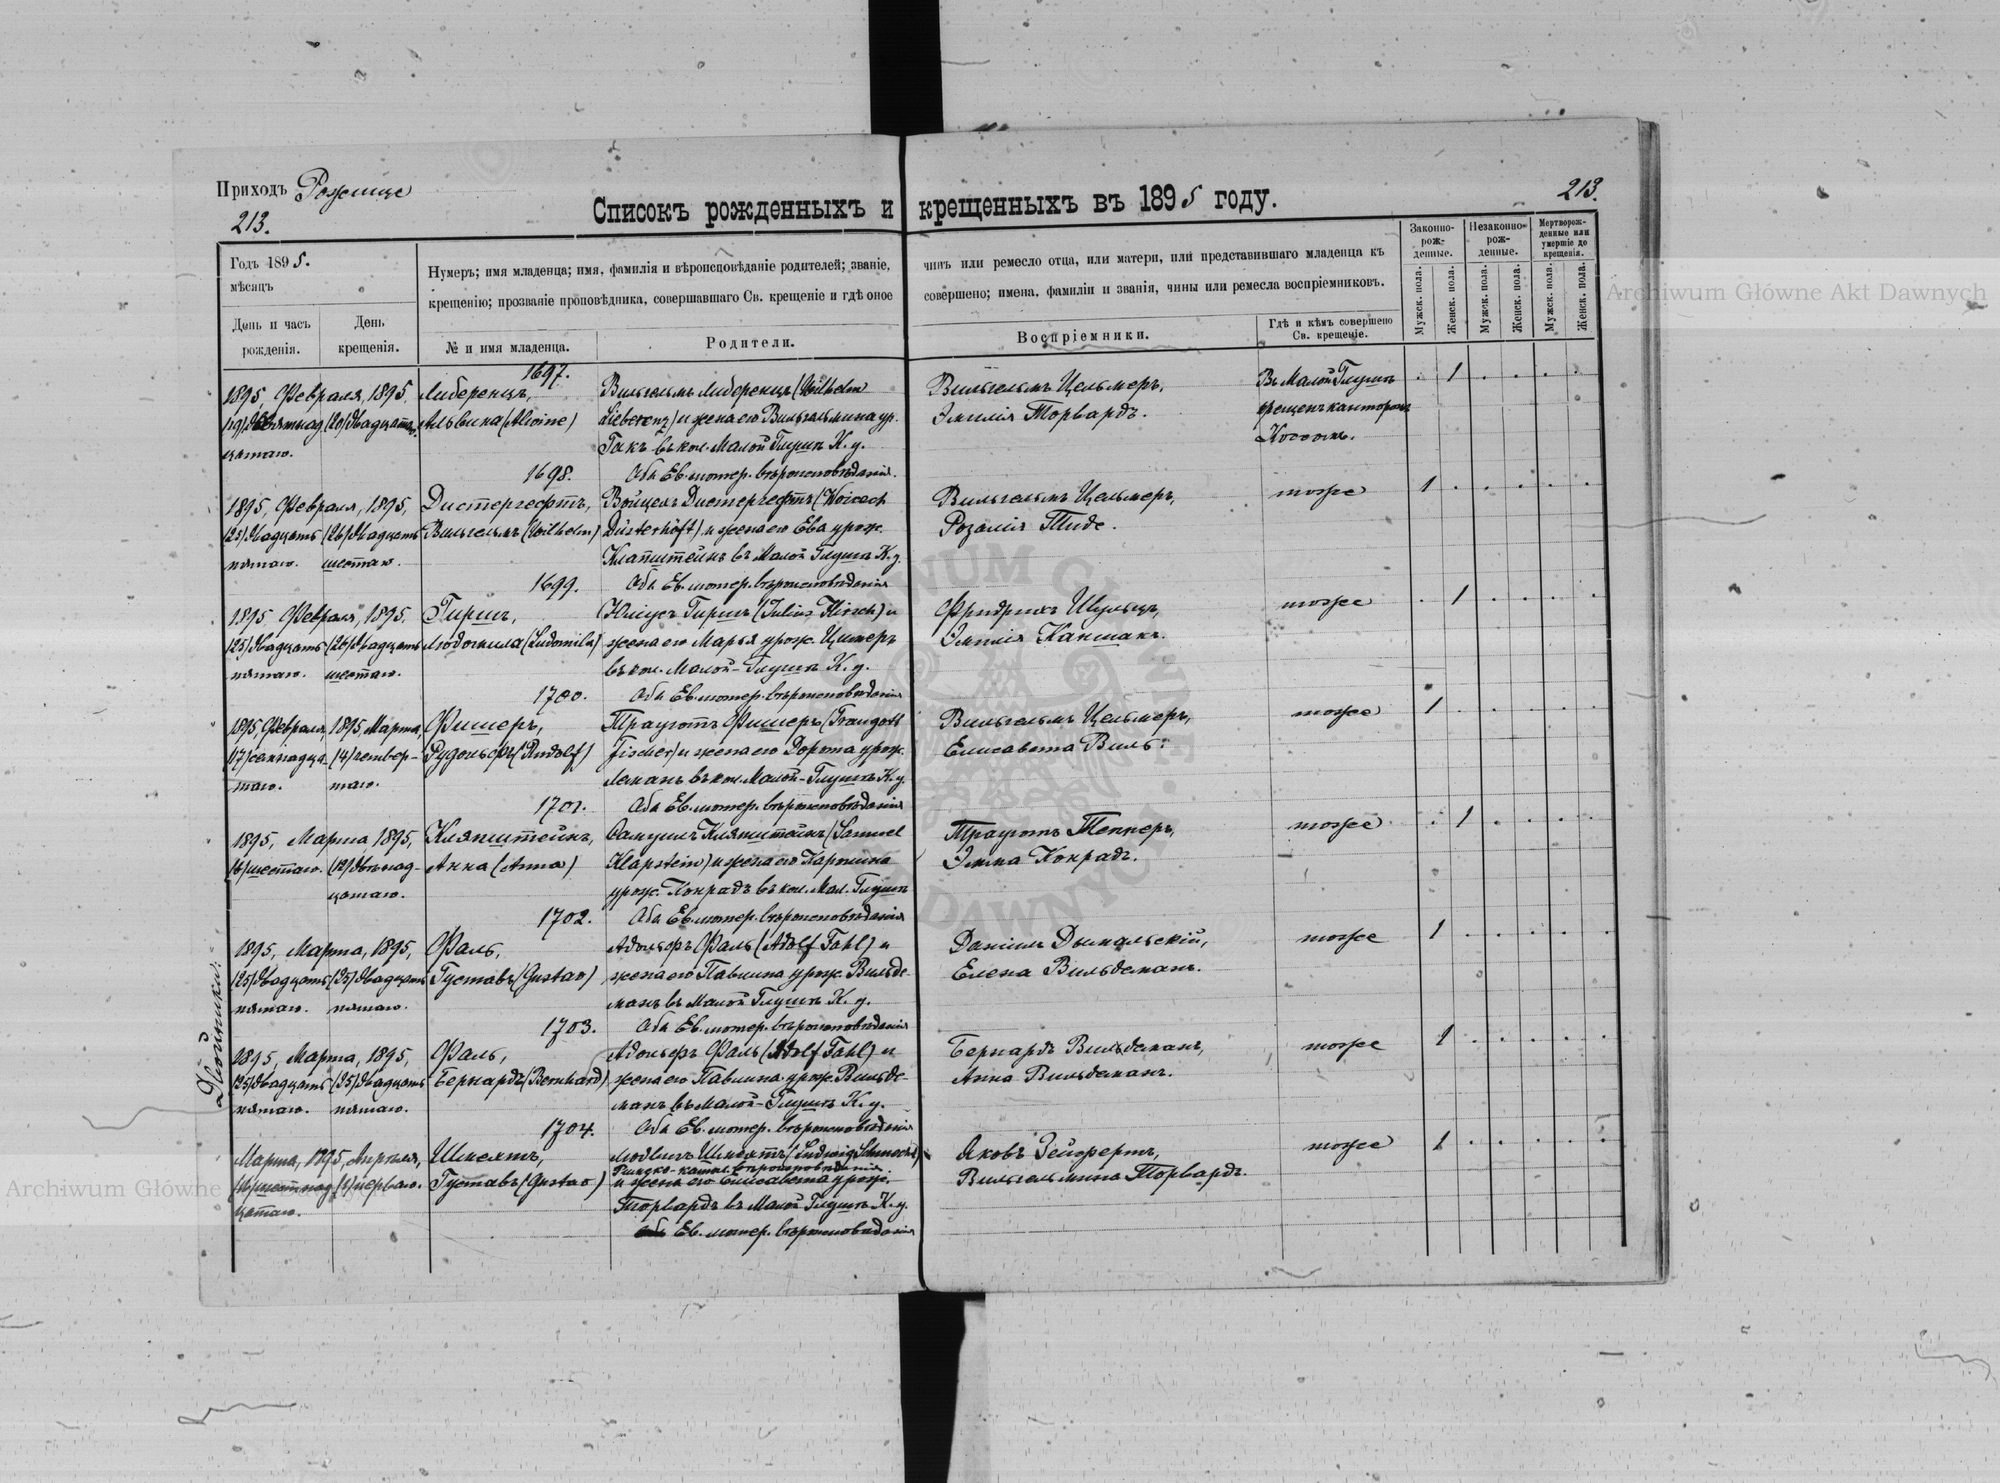 Приходъ Рожище
213.
213.
Списокъ рожденныхъ и крещенныхъ въ 1895 году.
Годъ 1895.
мѣсяцъ
День и часъ рожденія.
День крещенія.
Нумеръ; имя младенца; имя, фамилія и вѣроисповѣданіе родителей; званіе, чинъ или ремесло отца, или матери, или представившаго младенца къ
крещенію; прозваніе проповѣдника, совершавшаго Св. крещеніе и гдѣ оное совершено; имена, фамиліи и званія, чины или ремесла воспріемниковъ.
№ и имя младенца.
Родители.
Воспріемники.
Гдѣ и кѣмъ совершено Св. крещеніе.
Законно-рож-денные.
Незаконно-рож-денные.
Мертворож-денные или умершіе до крещенія.
Мужск. пола.
Женск. пола.
Мужск. пола.
Женск. пола.
Мужск. пола.
Женск. пола.
1697.
1895, Февраля, 1895, Либеренцъ, Вильгельмъ Либеренцъ (Wilhelm Вильгельмъ Цельмеръ, Въ Малой Глушѣ 1
(19) Девятнад (20) Двадцатаго Альвина (Alvine) Lieberenz) и жена его Вильгельмина ур. Эмилія Торвардъ. крещенъ канторомъ
цатаго. въ кол. Малой Глушѣ К. у.
1698. Оба Ев. лютер. вѣроисповѣданія.
1895, Февраля, 1895, Дистергефтъ, Войцехъ Дистергефтъ (Woicech Вильгельмъ Цельмеръ, тоже 1
(25) Двадцать (26) Двадцать Вильгельмъ (Wilhelm) Düsterhöft) и жена его Ева урож. Розалія Тиде.
пятаго. шестаго. Клапштейнъ въ Малой Глуша К. у.
1699. Оба Ев. лютер. вѣроисповѣданія
1895, Февраля, 1895. Гиршъ, Юліусъ Гиршъ (Julius Hirsch) и Фридрихъ Шульцъ, тоже 1
(25) Двадцать (26) Двадцать Людомила (Ludomila) жена его Марья урож. Цимеръ Эмилія
пятаго. шестаго. въ кол. Малой-Глушѣ К. у.
1700. Оба Ев. лютер. вѣроисповѣданія
1895, Февраля, 1895, Марта, Фишеръ, Трауготтъ Фишеръ (Traugott Вильгельмъ Цельмеръ, тоже 1
(17) семнадца (4) четвер- Рудольфъ (Rudolf) Fischer) и жена его Дорота урож. Елисавета Виль.
таго. таго. въ кол. Малой-Глушѣ К. у.
1701. Оба Ев. лютер. вѣроисповѣданія
1895, Марта 1895, Кляпштейнъ, Самуилъ Кляпштейнъ (Samuel Трауготъ Теннеръ, тоже 1
(6) шестаго. (12) двѣнад- Анна (Anna) Klapstein) и жена его Каролина Эмма Конрадъ.
цатаго. урож. Конрадъ въ кол. Мал. Глушѣ
1702. Оба Ев. лютер. вѣроисповѣданія
1895, Марта, 1895, Фаль, Адольфъ Фаль (Adolf Fahl) и Даніилъ Дымальскій, тоже 1
(25) Двадцать (25) Двадцать Густавъ (Gustav) жена его Павлина урож. Вильде- Елена Вильдеманъ.
пятаго. пятаго. манъ въ Малой Глушѣ К. у.
1703. Оба Ев. лютер. вѣроисповѣданія
Двойники.
1895, Марта, 1895, Фаль, Адольфъ Фаль (Adolf Fahl) и Бернардъ Вильдеманъ, тоже 1
(25) Двадцать (25) Двадцать Бернардъ (Bernhard) жена его Павлина урож. Вильде- Анна Вильдеманъ.
пятаго. пятаго. манъ въ Малой-Глушѣ К. у.
1704. Оба Ев. лютер. вѣроисповѣданія
Марта, 1895, Апрѣля, Людвигъ (Ludwig Яковъ Зейфертъ, тоже 1
Римско-катол. вѣроисповѣданія
(16) шестнад (1) перваго. Густавъ (Gustav) и жена его Елисавета урож. Вильгельмина Торвардъ.
цатаго. Торвардъ въ Малой Глушѣ К. у.
Ев. лютер. вѣроисповѣданія
Archiwum Główne Akt Dawnych
Archiwum Główne